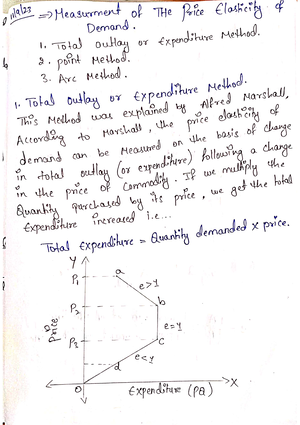 11/9/23 ⇒ Measurment of The Price Elasticity of
Demand.
1. Total outlay or Expenditure Method.
2. Point Method.
3. Arc Method.
1. Total outlay or Expenditure Method.
This Method was explained by Alfred Marshall,
According to Marshall, the price elasticity of
demand can be Measured on the basis of change
in total outlay (or expenditure) following a change
in the price of Commodity. If we multiply the
Quantity purchased by its price, we get the total
Expenditure increased i.e...
Total Expenditure = Quantity demanded x price.
Y
P1
a
e>1
P2
b
Price
e=1
P3
c
e<1
d
O
Expenditure (PQ)
X